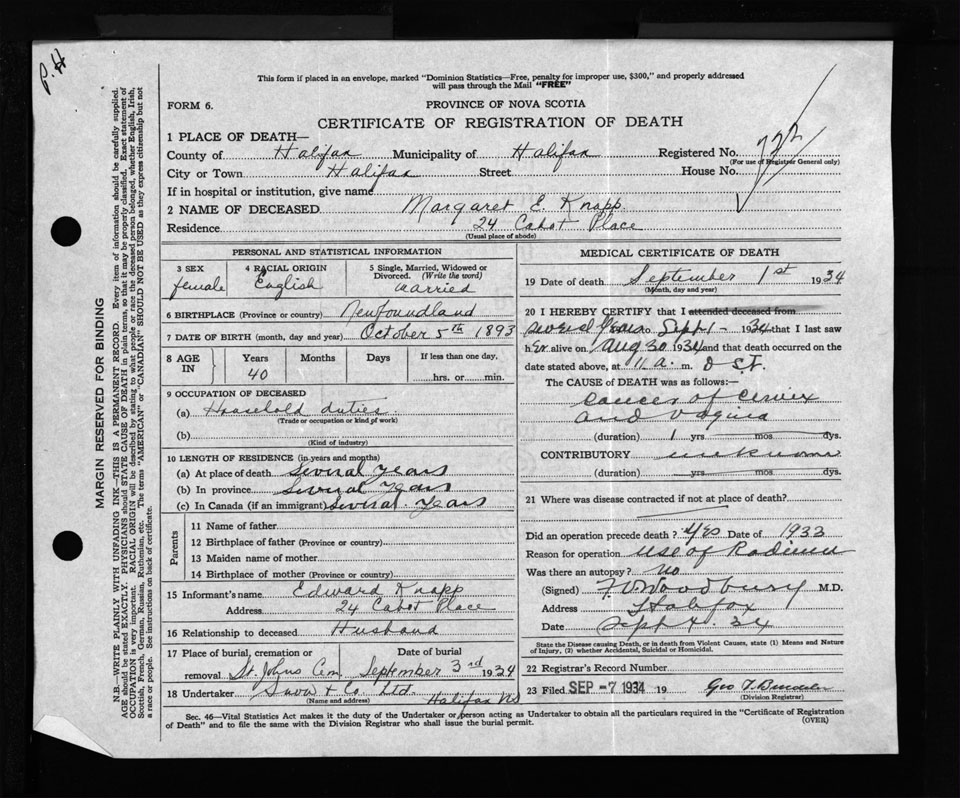 P.H
This form if placed in an envelope, marked "Dominion Statistics—Free, penalty for improper use, $300," and properly addressed
will pass through the Mail "FREE"
FORM 6.
PROVINCE OF NOVA SCOTIA
CERTIFICATE OF REGISTRATION OF DEATH
1 PLACE OF DEATH—
County of Halifax Municipality of Halifax Registered No. 722
(For use of Registrar General only)
City or Town Halifax Street House No.
If in hospital or institution, give name
2 NAME OF DECEASED Margaret E Knapp
Residence 24 Cabot Place
(Usual place of abode)
PERSONAL AND STATISTICAL INFORMATION
3 SEX
female
4 RACIAL ORIGIN
English
5 Single, Married, Widowed or
Divorced. (Write the word)
Married
6 BIRTHPLACE (Province or country) Newfoundland
7 DATE OF BIRTH (month, day and year) October 5th 1893
8 AGE IN
Years Months Days If less than one day,
40 hrs. or min.
9 OCCUPATION OF DECEASED
(a) Household duties
(Trade or occupation or kind of work)
(b)
(Kind of industry)
10 LENGTH OF RESIDENCE (in years and months)
(a) At place of death Several years
(b) In province Several years
(c) In Canada (if an immigrant) Several years
Parents
11 Name of father
12 Birthplace of father (Province or country)
13 Maiden name of mother
14 Birthplace of mother (Province or country)
15 Informant's name Edward Knapp
Address 24 Cabot Place
16 Relationship to deceased Husband
17 Place of burial, cremation or Date of burial
removal St. Johns Cem September 3rd 1934
18 Undertaker Snow & Co. Ltd.
(Name and address) Halifax NS
MEDICAL CERTIFICATE OF DEATH
19 Date of death September 1st 1934
(Month, day and year)
20 I HEREBY CERTIFY that I attended deceased from
several years Sept 1 - 1934 that I last saw
her alive on Aug 30 1934 and that death occurred on the
date stated above, at 11 a. m. D S T.
The CAUSE of DEATH was as follows:—
Cancer of Cervix
and Vagina
(duration) 1 yrs mos dys.
CONTRIBUTORY unknown
(duration) yrs mos dys.
21 Where was disease contracted if not at place of death?
Did an operation precede death? Yes Date of 1933
Reason for operation Use of Radium
Was there an autopsy? No
(Signed) F. V. Woodbury M.D.
Address Halifax
Date Sept 4. 34
State the Disease Causing Death, or in death from Violent Causes, state (1) Means and Nature
of Injury, (2) whether Accidental, Suicidal or Homicidal.
22 Registrar's Record Number
23 Filed SEP -7 1934 19 Geo
(Division Registrar)
Sec. 46—Vital Statistics Act makes it the duty of the Undertaker or person acting as Undertaker to obtain all the particulars required in the "Certificate of Registration
of Death" and to file the same with the Division Registrar who shall issue the burial permit. (OVER)
MARGIN RESERVED FOR BINDING
N.B.—WRITE PLAINLY WITH UNFADING INK—THIS IS A PERMANENT RECORD. Every item of information should be carefully supplied.
AGE should be stated EXACTLY. PHYSICIANS should STATE CAUSE OF DEATH in plain terms, so that it may be properly classified. Exact statement of
OCCUPATION is very important. RACIAL ORIGIN will be described by stating to what people or race the deceased person belonged, whether English, Irish,
Scottish, French, German, Russian, Ruthenian, etc. The terms "AMERICAN" or "CANADIAN" SHOULD NOT BE USED as they express citizenship but not
a race or people. See instructions on back of certificate.